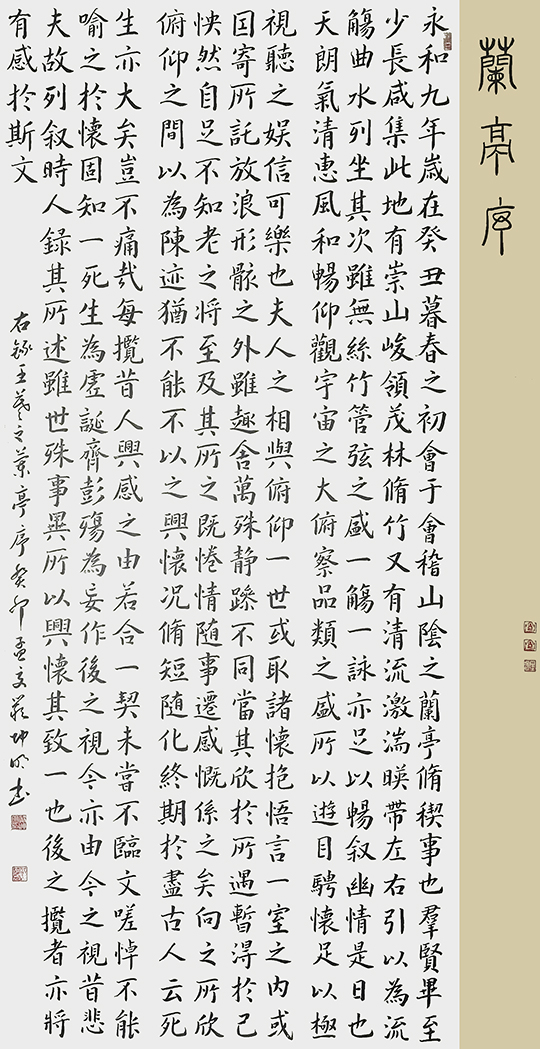 蘭亭序
永和九年歲在癸丑暮春之初會于會稽山陰之蘭亭脩稧事也羣賢畢至
少長咸集此地有崇山峻領茂林脩竹又有清流激湍暎帶左右引以為流
觴曲水列坐其次雖無絲竹管弦之盛一觴一詠亦足以暢叙幽情是日也
天朗氣清惠風和暢仰觀宇宙之大俯察品類之盛所以遊目騁懷足以極
視聽之娛信可樂也夫人之相與俯仰一世或取諸懷抱悟言一室之內或
因寄所託放浪形骸之外雖趣舍萬殊静躁不同當其欣於所遇暫得於己
怏然自足不知老之將至及其所之既惓情随事遷感慨係之矣向之所欣
俯仰之間以為陳迹猶不能不以之興懷况脩短随化終期於盡古人云死
生亦大矣豈不痛哉每攬昔人興感之由若合一契未嘗不臨文嗟悼不能
喻之於懷固知一死生為虛誕齊彭殤為妄作後之視今亦由今之視昔悲
夫故列叙時人録其所述雖世殊事異所以興懷其致一也後之攬者亦將
有感於斯文
右錄王羲之蘭亭序癸卯孟夏嚴坤明書